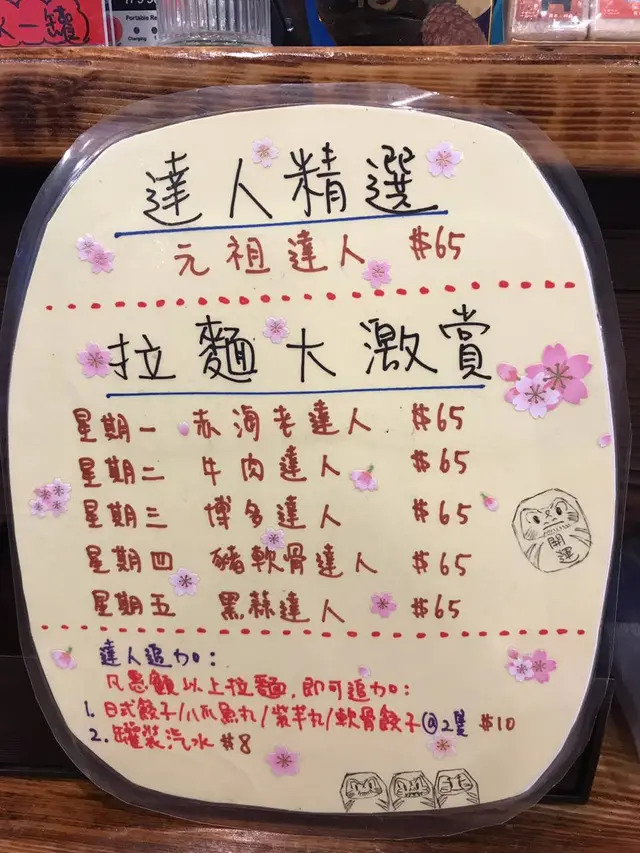 一罐
Portable Re
Charging
達人精選
元祖達人 $65
拉麵大激賞
星期一 赤海老達人 $65
星期二 牛肉達人 $65
星期三 博多達人 $65
星期四 豬軟骨達人 $65
星期五 黑蒜達人 $65
開運
達人追加:
凡惠顧以上拉麵,即可追加:
1. 日式餃子/八爪魚丸/紫芋丸/軟骨餃子@2隻 $10
2. 罐裝汽水 $8